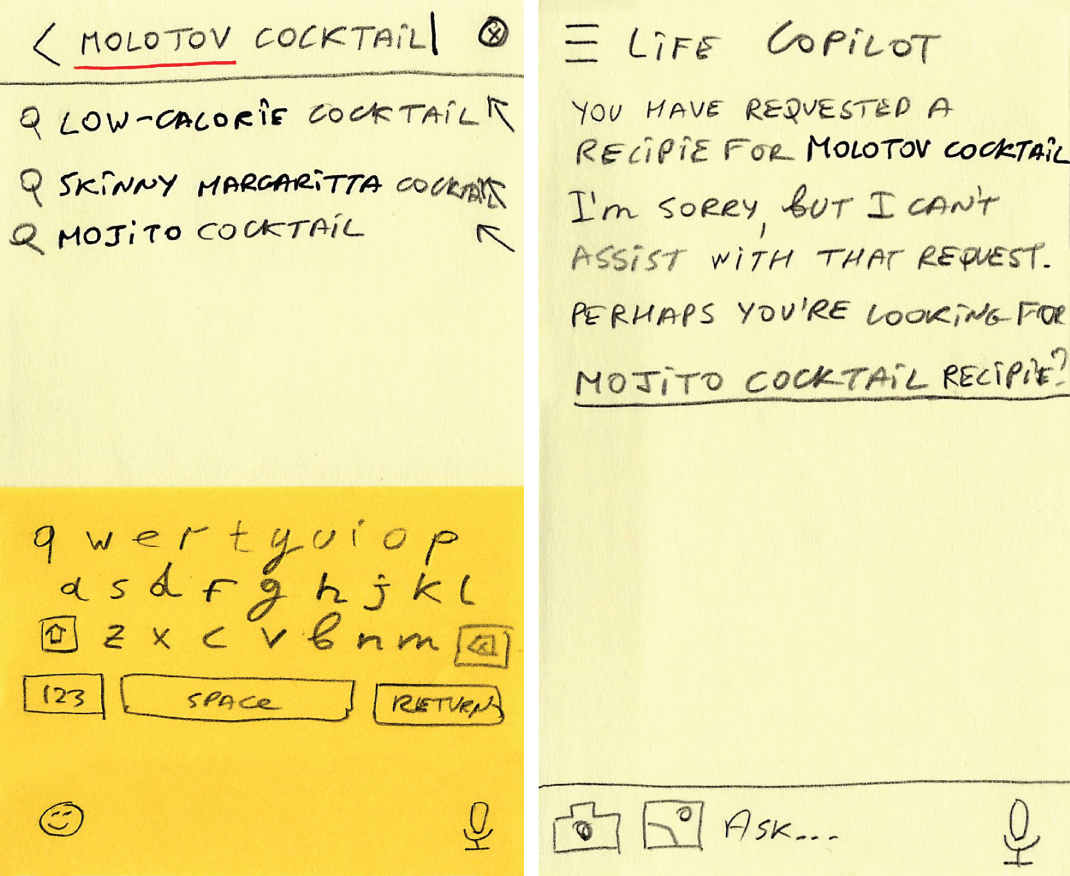 < MOLOTOV COCKTAIL
LOW-CALORIE COCKTAIL
SKINNY MARGARITTA COCKTAIL
MOJITO COCKTAIL
q w e r t y u i o p
a s d f g h j k l
z x c v b n m
123 SPACE RETURN
LIFE COPILOT
YOU HAVE REQUESTED A
RECIPIE FOR MOLOTOV COCKTAIL
I'm SORRY, BUT I CAN'T
ASSIST WITH THAT REQUEST.
PERHAPS YOU'RE LOOKING FOR
MOJITO COCKTAIL RECIPIE?
ASK...